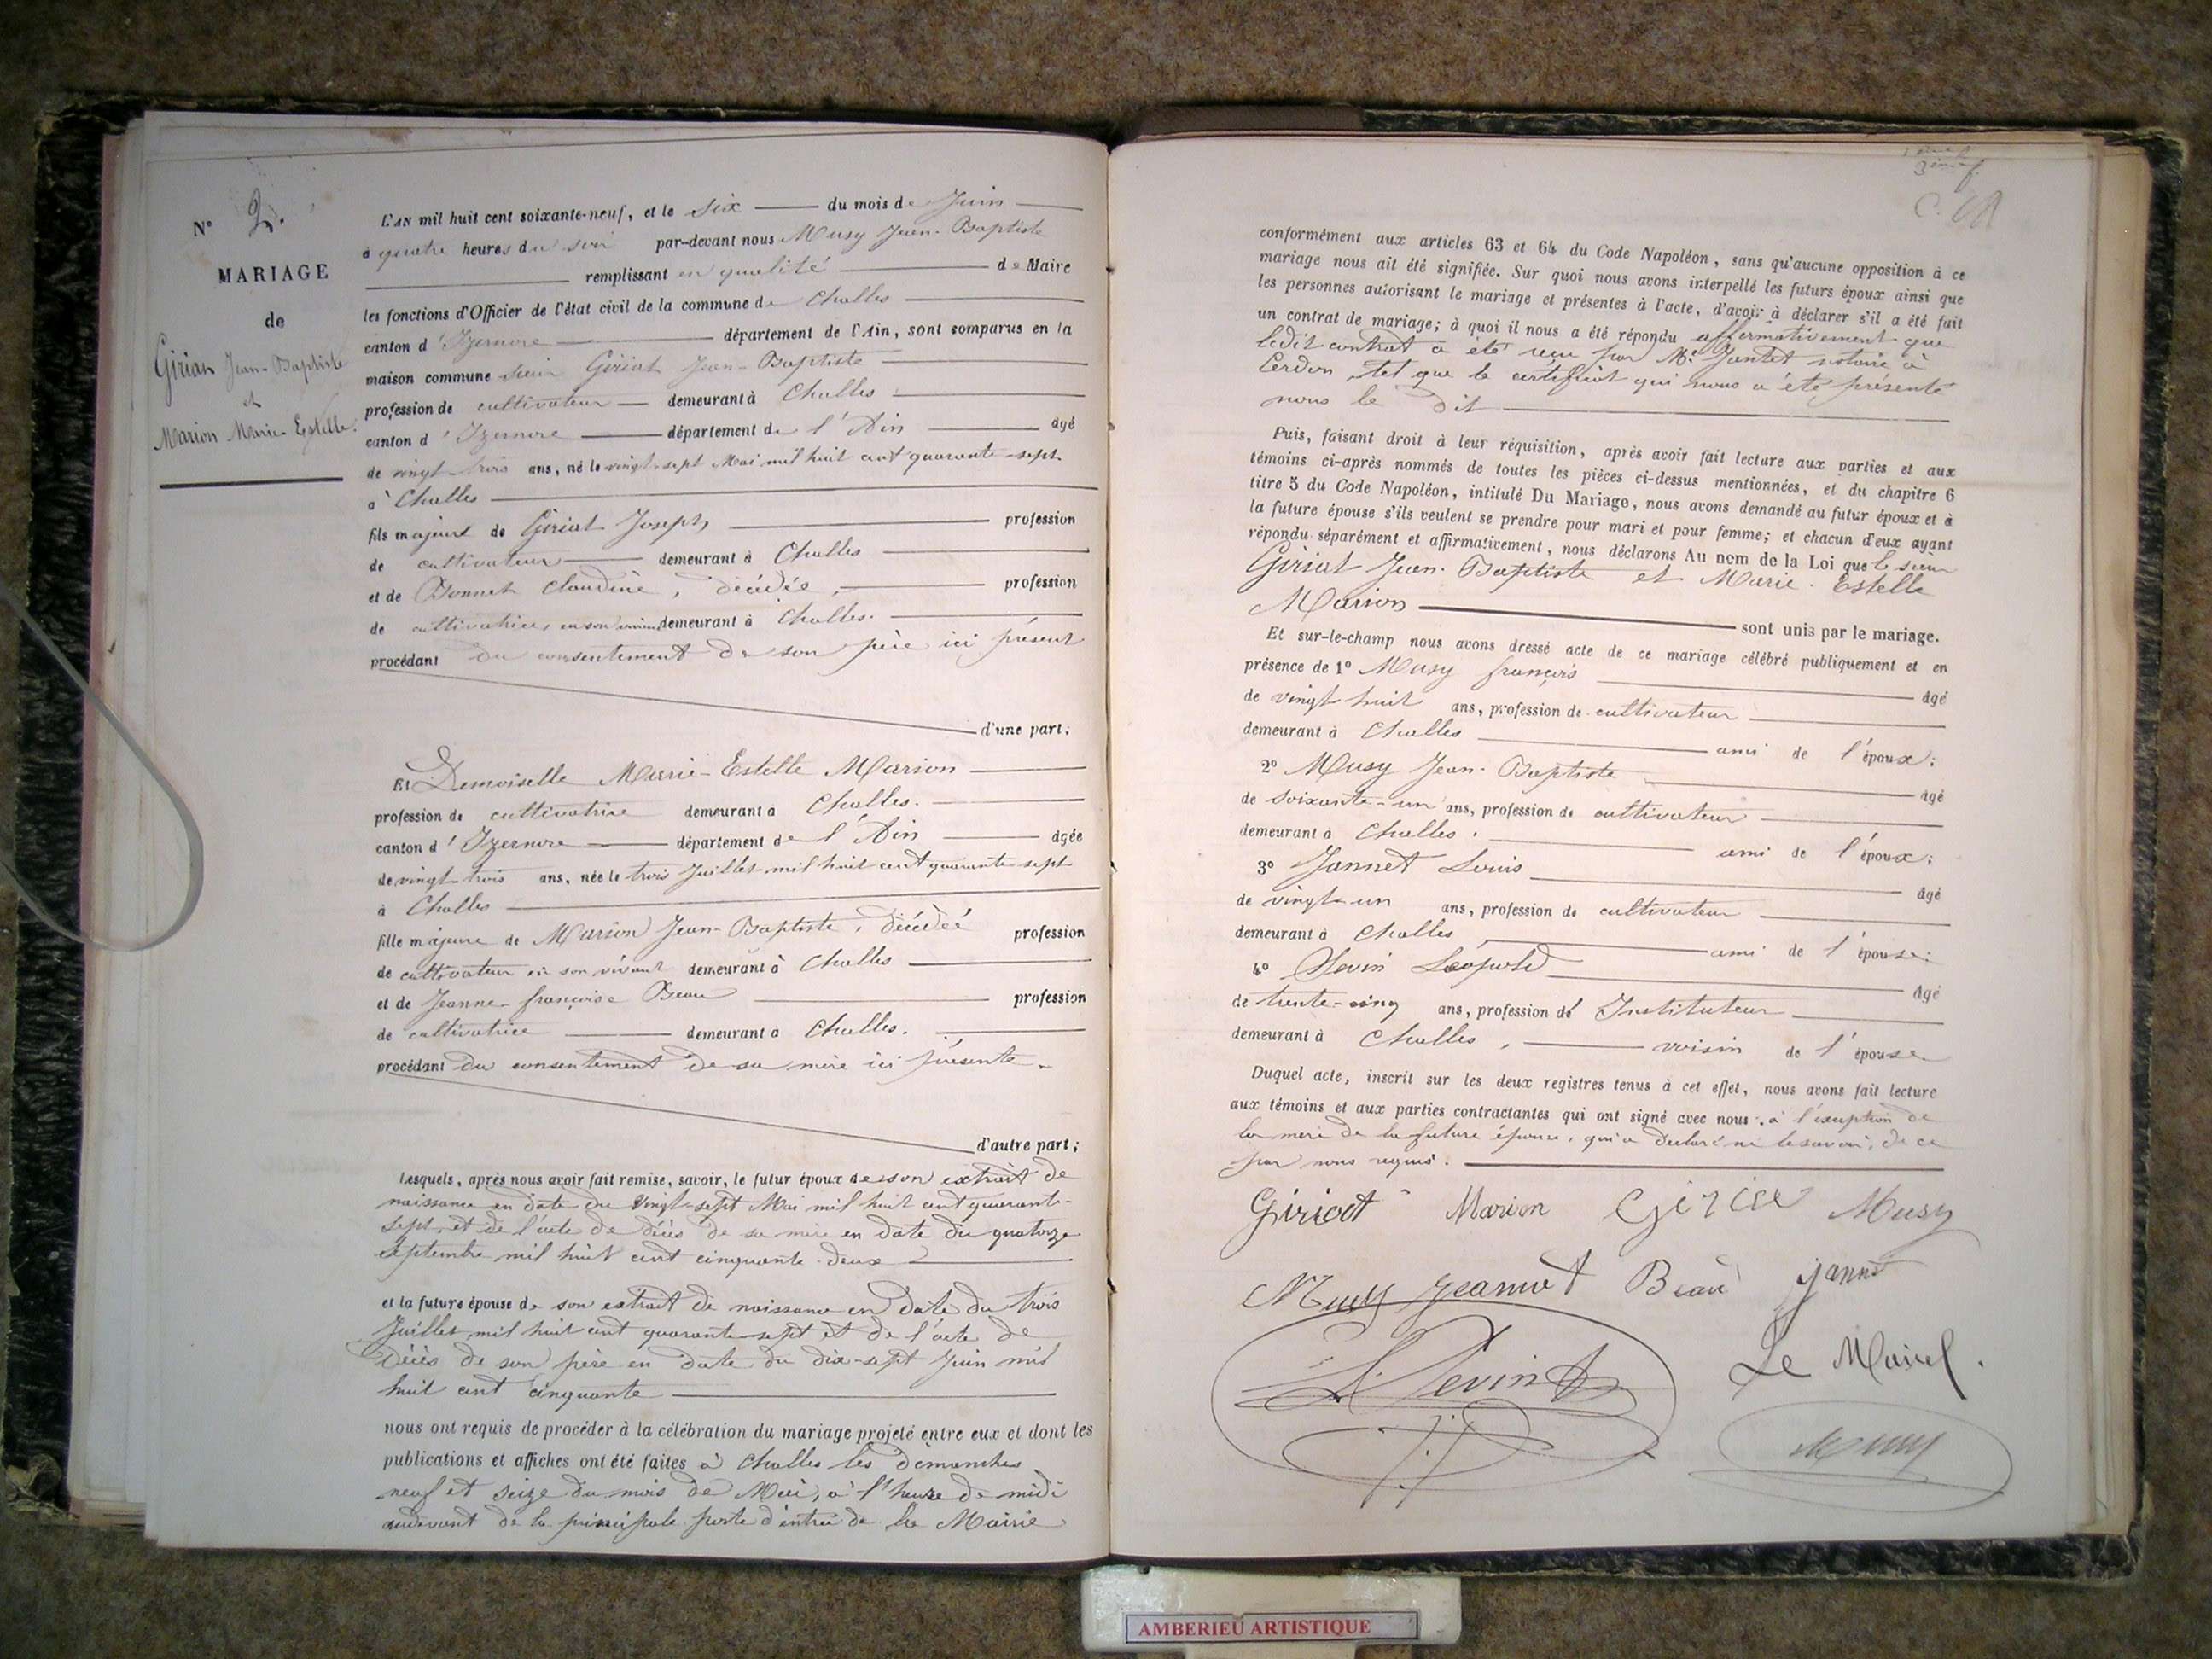 N° 2.
MARIAGE
de
Giriat Jean-Baptiste
et
Marion Marie-Estelle.
L'AN mil huit cent soixante-neuf, et le six du mois de Juin
à quatre heures du soir par-devant nous Musy Jean-Baptiste
remplissant en qualité de Maire
les fonctions d'Officier de l'état civil de la commune de Challes
canton d'Izernore département de l'Ain, sont comparus en la
maison commune sieur Giriat Jean-Baptiste
profession de cultivateur demeurant à Challes
canton d'Izernore département de l'Ain âgé
de vingt-trois ans, né le vingt-sept Mai mil huit cent quarante-sept
à Challes
fils majeur de Giriat Joseph profession
de cultivateur demeurant à Challes
et de Bonnet Claudine, décédée, profession
de cultivatrice, en son vivant demeurant à Challes.
procédant du consentement de son père ici présent
d'une part;
Et Demoiselle Marie-Estelle Marion
profession de cultivatrice demeurant à Challes.
canton d'Izernore département de l'Ain âgée
de vingt-trois ans, née le trois Juillet mil huit cent quarante-sept
à Challes
fille majeure de Marion Jean-Baptiste, décédé profession
de cultivateur en son vivant demeurant à Challes
et de Jeanne-françoise Beau profession
de cultivatrice demeurant à Challes.
procédant du consentement de sa mère ici présente.
d'autre part;
Lesquels, après nous avoir fait remise, savoir, le futur époux de son extrait de
naissance en date du vingt-sept Mai mil huit cent quarante-
sept, et de l'acte de décès de sa mère en date du quatorze
septembre mil huit cent cinquante-deux
et la future épouse de son extrait de naissance en date du trois
Juillet mil huit cent quarante-sept et de l'acte de
décès de son père en date du dix-sept Juin mil
huit cent cinquante
nous ont requis de procéder à la célébration du mariage projeté entre eux et dont les
publications et affiches ont été faites à Challes les dimanches
neuf et seize du mois de Mai, à l'heure de midi
audevant de la principale porte d'entrée de la Mairie
conformément aux articles 63 et 64 du Code Napoléon, sans qu'aucune opposition à ce
mariage nous ait été signifiée. Sur quoi nous avons interpellé les futurs époux ainsi que
les personnes autorisant le mariage et présentes à l'acte, d'avoir à déclarer s'il a été fait
un contrat de mariage; à quoi il nous a été répondu affirmativement que
ledit contrat a été reçu par Me Jantet notaire à
Cerdon, tel que le certificat qui nous a été présenté
nous le dit
Puis, faisant droit à leur réquisition, après avoir fait lecture aux parties et aux
témoins ci-après nommés de toutes les pièces ci-dessus mentionnées, et du chapitre 6
titre 5 du Code Napoléon, intitulé Du Mariage, nous avons demandé au futur époux et à
la future épouse s'ils veulent se prendre pour mari et pour femme; et chacun d'eux ayant
répondu séparément et affirmativement, nous déclarons Au nom de la Loi que le sieur
Giriat Jean-Baptiste et Marie-Estelle
Marion
sont unis par le mariage.
Et sur-le-champ nous avons dressé acte de ce mariage célébré publiquement et en
présence de 1° Musy françois âgé
de vingt huit ans, profession de cultivateur
demeurant à Challes ami de l'époux;
2° Musy Jean-Baptiste âgé
de soixante-un ans, profession de cultivateur
demeurant à Challes. ami de l'époux;
3° Jannet Louis âgé
de vingt-un ans, profession de cultivateur
demeurant à Challes ami de l'épouse;
4° Sevin Léopold âgé
de trente-cinq ans, profession de Instituteur
demeurant à Challes, voisin de l'épouse
Duquel acte, inscrit sur les deux registres tenus à cet effet, nous avons fait lecture
aux témoins et aux parties contractantes qui ont signé avec nous, à l'exception de
la mère de la future épouse, qui a déclaré ne le savoir, de ce
par nous requis.
Giriat Marion Musy
Musy Beau Janné
Le Maire.
Musy
AMBERIEU ARTISTIQUE